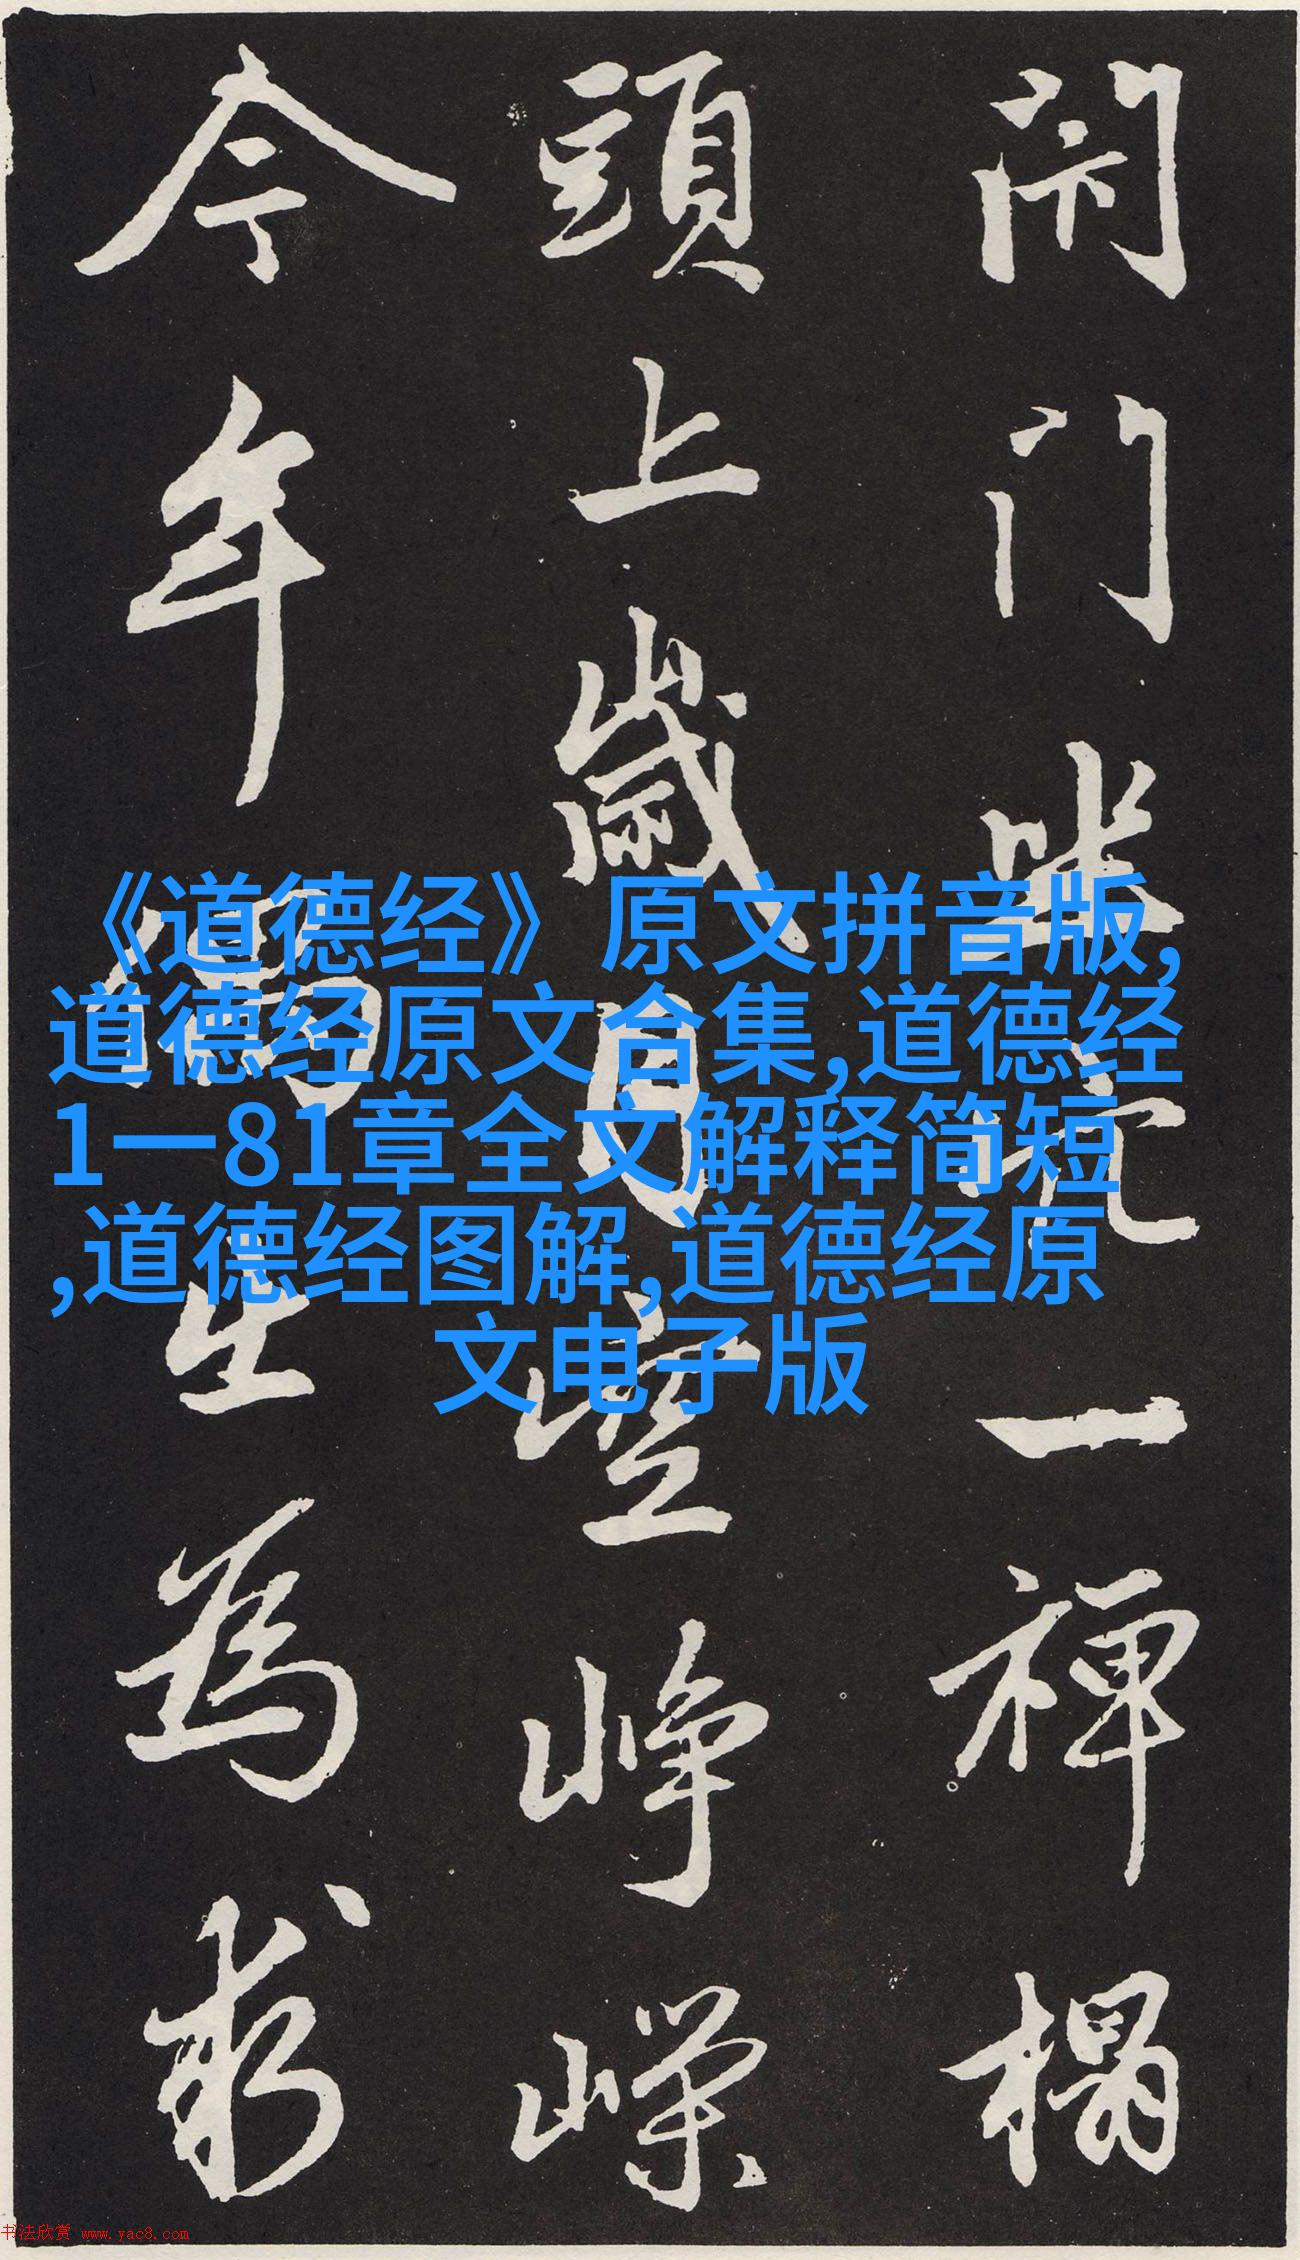 閉门坐穴一禅榻
頭上歲月空峥嶸
今年偶出為求
《道德经》原文拼音版,
道德经原文合集,道德经
1一81章全文解释简短
,道德经图解,道德经原
文电子版
书法欣赏 www.yac8.com